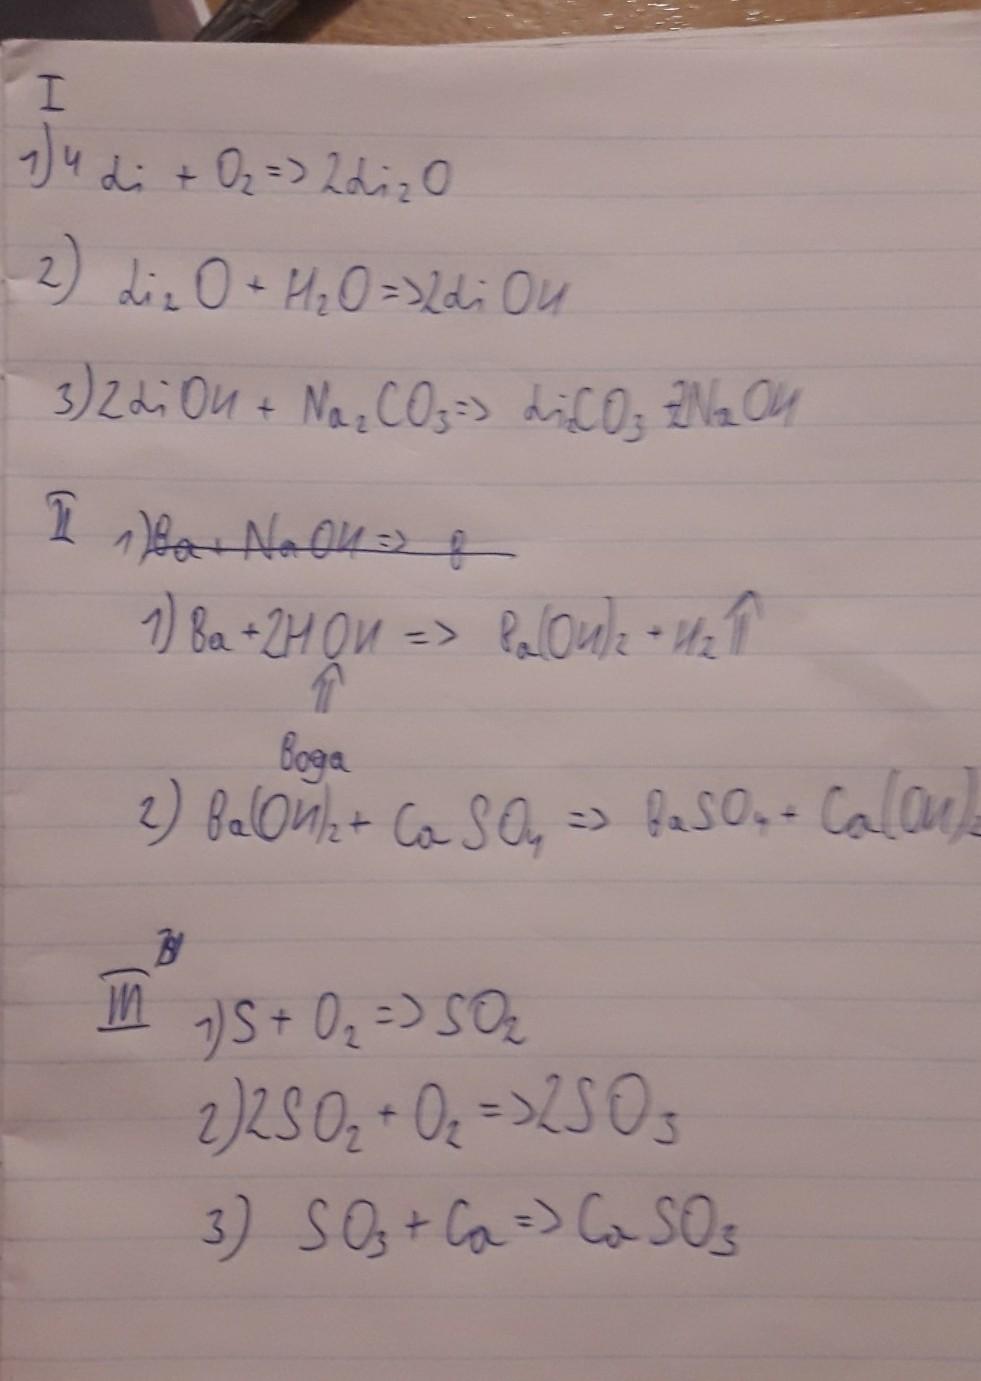 I
1) 4 Li + O₂ => 2Li₂O
2) Li₂O + H₂O => 2LiOH
3) 2LiOH + Na₂CO₃ => Li₂CO₃ + 2NaOH
II 1) Ba + NaOH => B
1) Ba + 2HOH => Ba(OH)₂ + H₂⇑
⇑
Вода
2) Ba(OH)₂ + CaSO₄ => BaSO₄ + Ca(OH)₂
III 1) S + O₂ => SO₂
2) 2SO₂ + O₂ => 2SO₃
3) SO₃ + Ca => CaSO₃